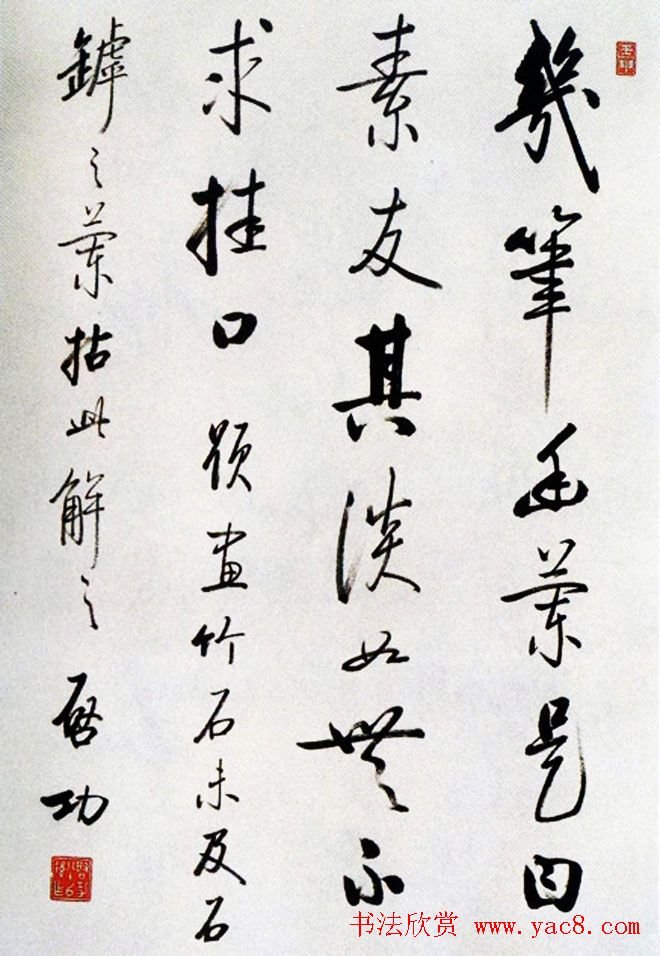 幾筆幽蘭是曰
素友其淡如無不
求挂口 題畫竹石未及石
罅之蘭拈此解之 啓功
书法欣赏 www.yac8.com